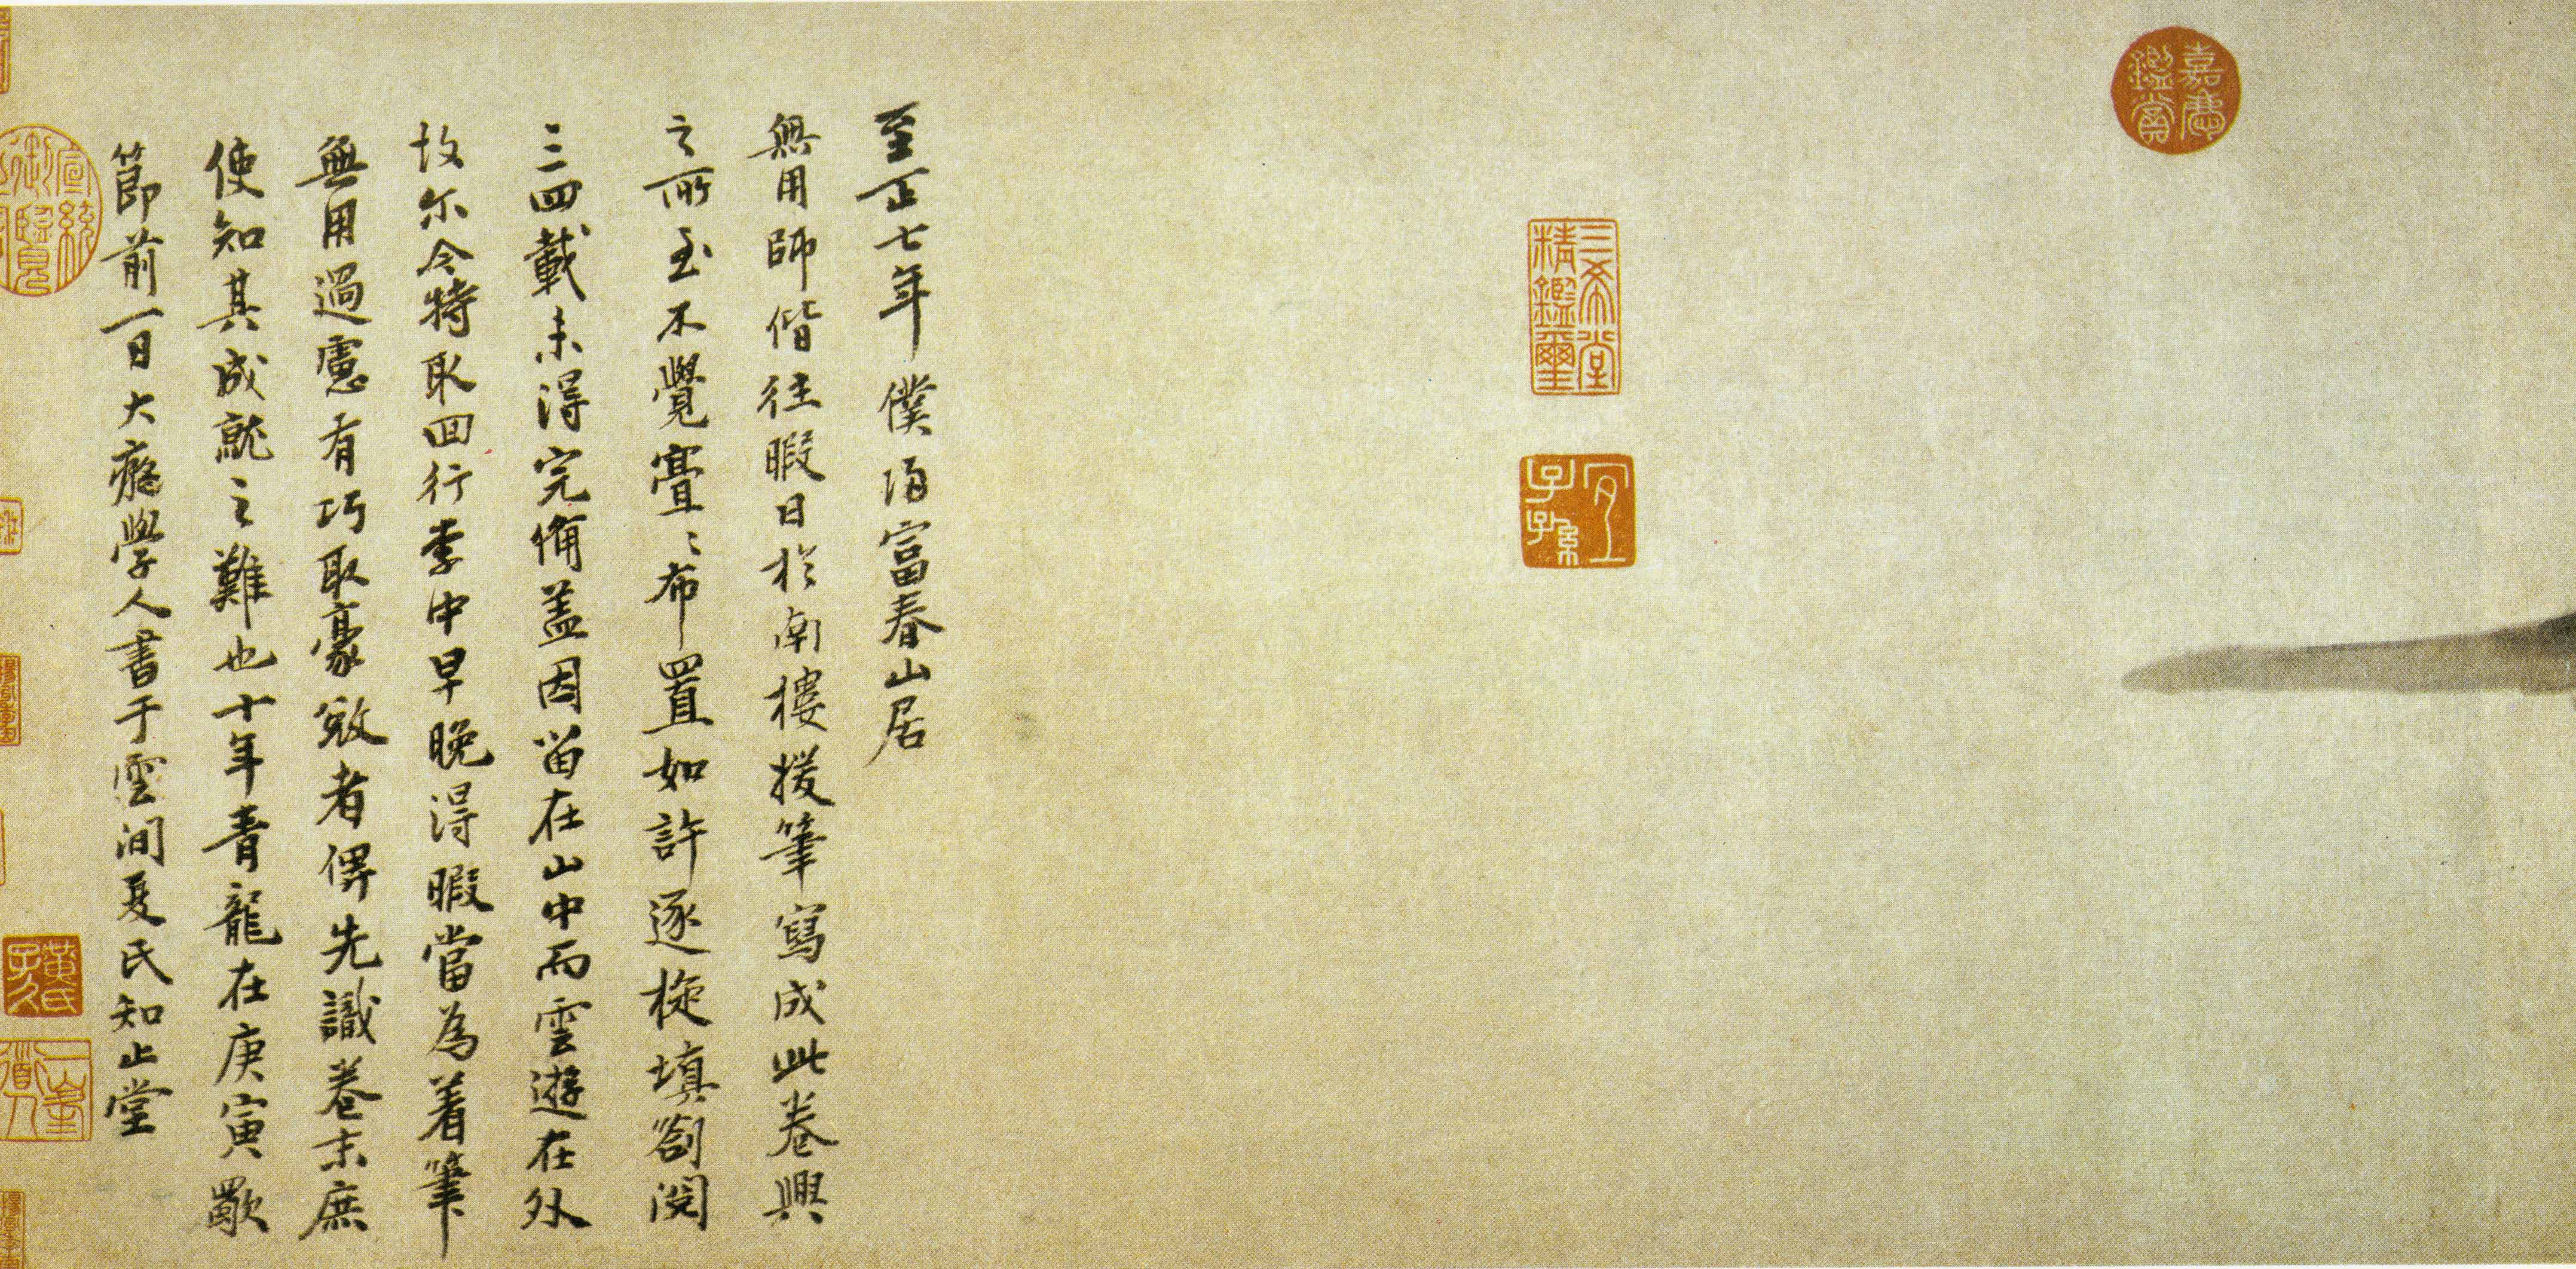 嘉慶
鑑賞
三希堂
精鑑璽
宜
子孫
至正七年僕歸富春山居
無用師偕往暇日於南樓援筆寫成此卷興
之所至不覺亹〻布置如許逐旋填劄閱
三四載未得完備盖因留在山中而雲遊在外
故尔今特取回行李中早晚得暇當為着筆
無用過慮有巧取豪敚者俾先識卷末庶
使知其成就之難也十年青龍在庚寅歜
節前一日大癡學人書于雲間夏氏知止堂
宣統
御覽
黃氏
子久
一峯
道人